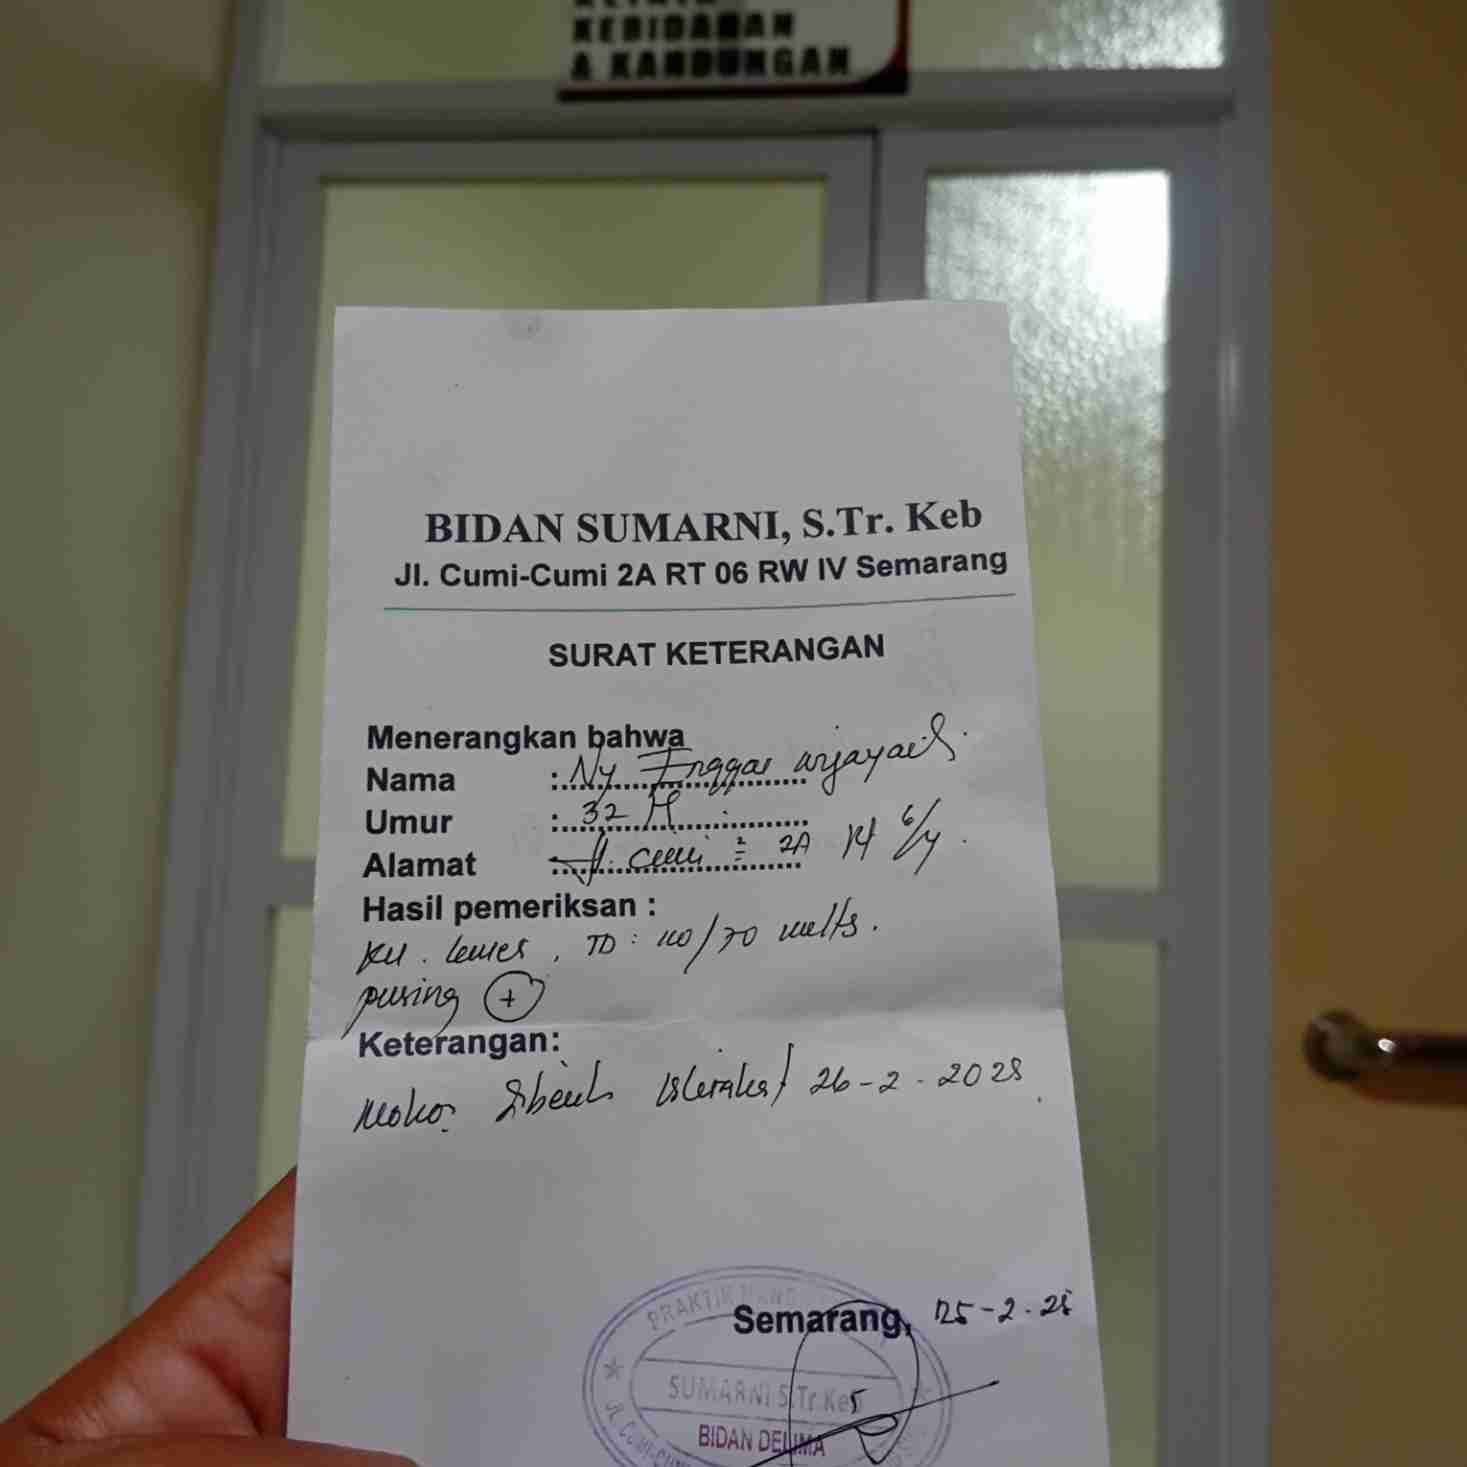 KLINIK
KEBIDANAN
& KANDUNGAN
BIDAN SUMARNI, S.Tr. Keb
Jl. Cumi-Cumi 2A RT 06 RW IV Semarang
SURAT KETERANGAN
Menerangkan bahwa
Nama : Ny Enggar
Umur : 32 th
Alamat : Jl. cumi² 2A Rt 6/4
Hasil pemeriksan :
KU. lemes, TD: 110/70 
pusing (+)
Keterangan:
Mohon istirahat 26-2-2025
Semarang, 25-2-25
PRAKTIK
SUMARNI S.Tr.Keb
BIDAN DELIMA